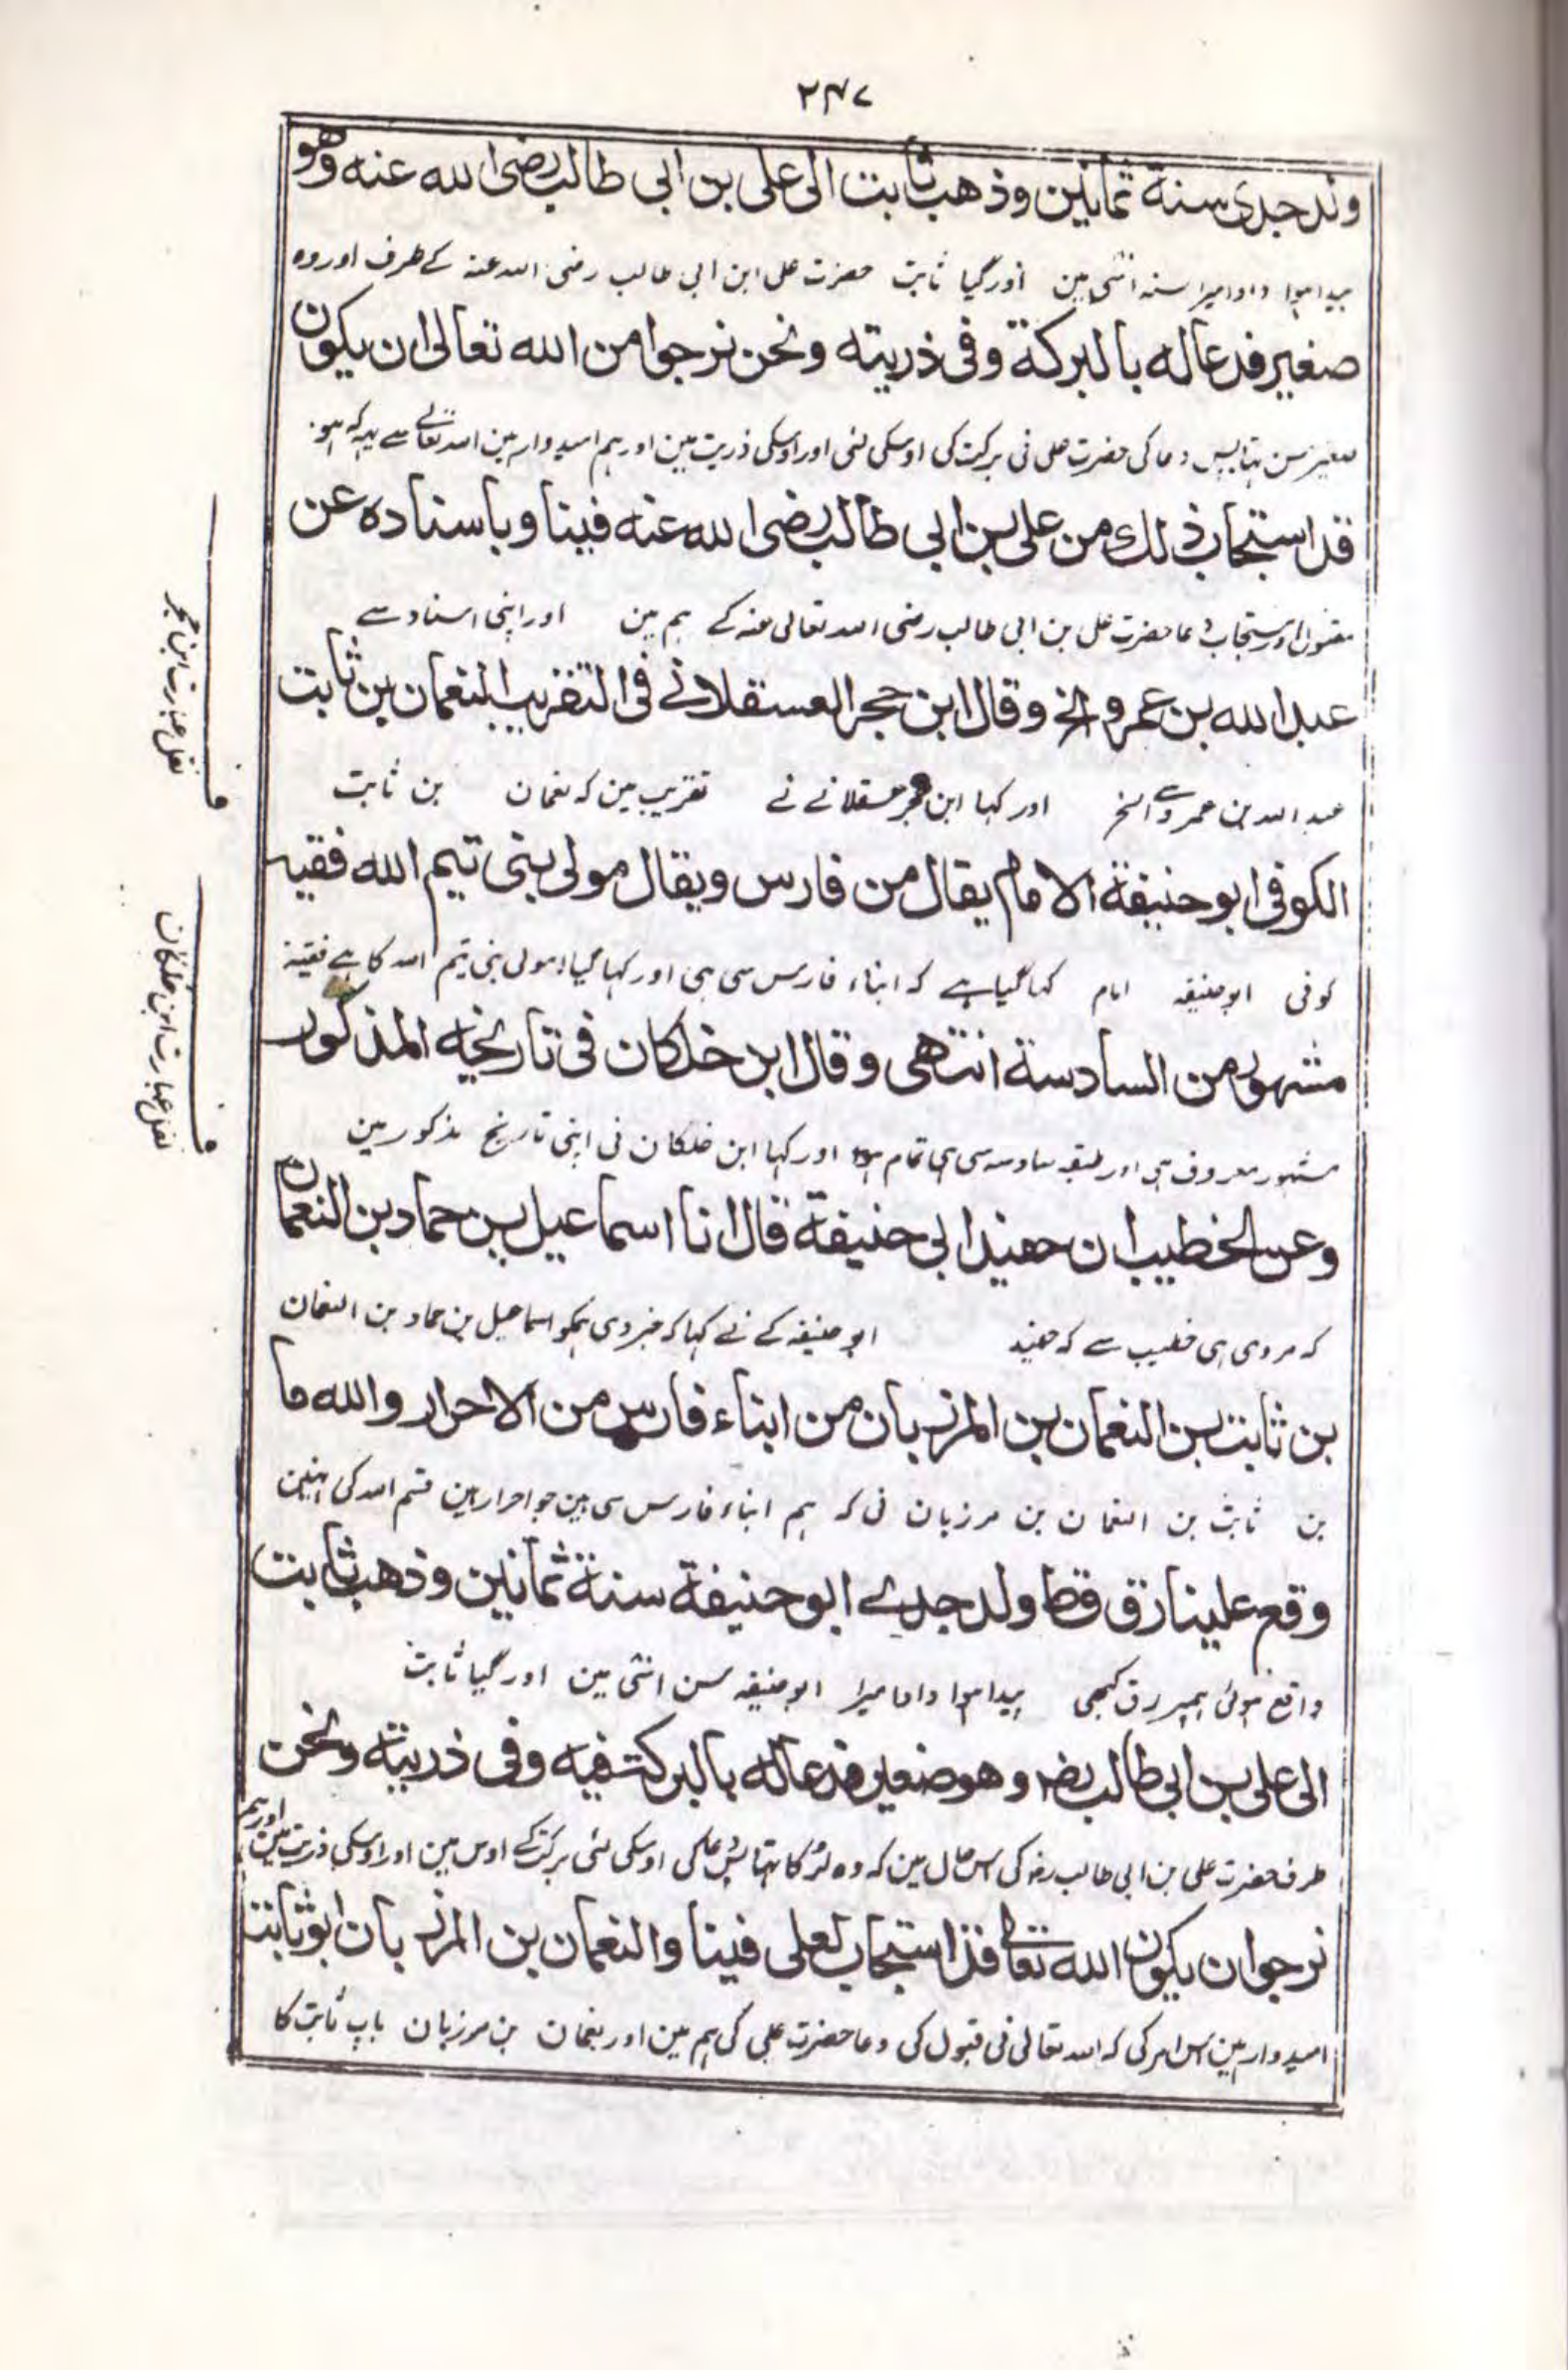 ۲۴۷
ولد جدی سنة ثمانین وذهب ثابت الی علی بن ابی طالب رضی الله عنه وهو
پیدا ہوا دادا میرا سنہ اسّی مین اور گیا ثابت حضرت علی ابن ابی طالب رضی اللہ عنہ کے طرف اور وہ
صغیر فدعا له بالبرکة وفی ذریته ونحن نرجوا من الله تعالی ان یکون
صغیر سن تہا پس دعا کی حضرت علی نی برکت کی اوسکی لئی اور اوسکی ذریت مین اور ہم امیدوار ہین اللہ تعالے سے یہہ کہ ہو
قد استجاب ذلك من علی بن ابی طالب رضی الله عنه فینا وباسناده عن
مقبول اور مستجاب دعا حضرت علی بن ابی طالب رضی اللہ تعالی عنہ کے ہم مین اور اپنی اسناد سے
عبد الله بن عمرو الخ وقال ابن حجر العسقلانے فی التقریب النعمان بن ثابت
عبد اللہ بن عمرو سے الخ اور کہا ابن حجر عسقلانے نے تقریب مین کہ نعمان بن ثابت
الکوفی ابو حنیفة الامام یقال من فارس ویقال مولی بنی تیم الله فقیه
کوفی ابو حنیفہ امام کہا گیا ہے کہ ابناء فارس سی ہی اور کہا گیا مولی بنی تیم اللہ کا ہے فقیہ
مشهور من السادسة انتهی وقال ابن خلکان فی تاریخه المذکور
مشہور معروف ہی اور طبقہ سادسہ سی ہی تمام ہوا اور کہا ابن خلکان نی اپنی تاریخ مذکور مین
وعن الخطیب ان حفید ابی حنیفة قال انا اسماعیل بن حماد بن النعمان
کہ مروی ہی خطیب سے کہ حفید ابو حنیفہ کے نے کہا کہ خبر دی ہمکو اسماعیل بن حماد بن النعمان
بن ثابت بن النعمان بن المرزبان من ابناء فارس من الاحرار والله ما
بن ثابت بن النعمان بن مرزبان نی کہ ہم ابناء فارس سی ہین جو احرار ہین قسم اللہ کی نہین
وقع علینا رق قط ولد جدے ابو حنیفة سنة ثمانین وذهب ثابت
واقع ہوئی ہمپر رق کبھی پیدا ہوا دادا میرا ابو حنیفہ سن اسّی مین اور گیا ثابت
الی علی بن ابی طالب رضه وهو صغیر فدعا له بالبرکت فیه وفی ذریته ونحن
طرف حضرت علی بن ابی طالب رضہ کی اس حال مین کہ وہ لڑکا تہا پس دعا کی اوسکی لئی برکت کے اوس مین اور اوسکی ذریت مین اور ہم
نرجوا ان یکون الله تعالی قد استجاب لعلی فینا والنعمان بن المرزبان ابو ثابت
امیدوار ہین اس امر کی کہ اللہ تعالی نی قبول کی دعا حضرت علی کی ہم مین اور نعمان بن مرزبان باپ ثابت کا
نقل عبارت ابن حجر
نقل عبارت ابن خلکان